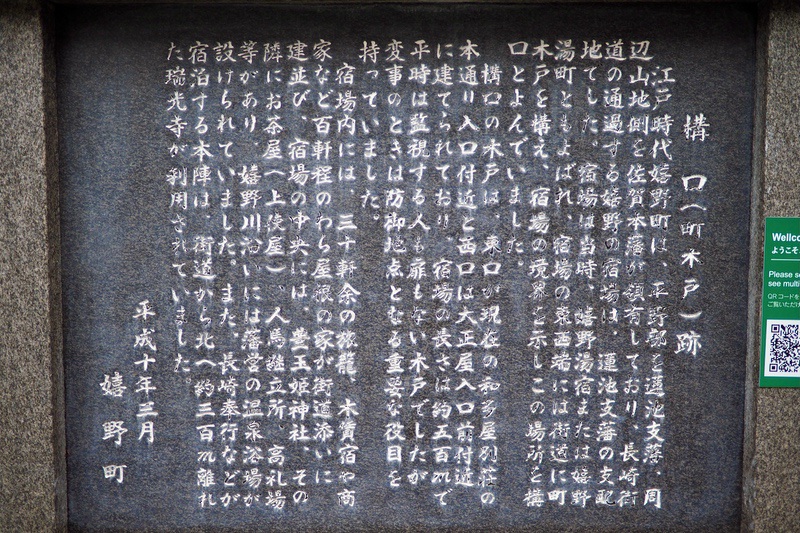 構口(町木戸)跡
江戸時代嬉野町は、平野部を蓮池支藩、周
辺山地側を佐賀本藩が領有しており、長崎街
道の通過する嬉野の宿場は、蓮池支藩の支配
地でした。宿場は当時、嬉野湯宿または嬉野
湯町ともよばれ、宿場の東西端には街道に町
木戸を構え、宿場の境界を示しこの場所を構
口とよんでいました
構口の木戸は、東口が現在の和多屋別荘の
本通り入口付近と西口は大正屋入口前付近
に建てられており、宿場の長さは約五百mで
平時は監視する人も扉もない木戸でしたが
変事のときは防御地点となる重要な役目を
持っていました。
宿場内には、三十軒余の旅籠、木賃宿や商
家など百軒程のわら屋根の家が街道添いに
建並び、宿場の中央には、豊玉姫神社、その
隣にお茶屋(上使屋)、人馬継立所、高札場
等があり、嬉野川沿いには藩営の温泉浴場が
設けられていました。また、長崎奉行などが
宿泊する本陣は、街道から北へ約三百m離れ
た瑞光寺が利用されていました。
平成十年三月
嬉野町
Wellco
ようこそ
Please s
see mult
QRコードを
ご覧いただけ